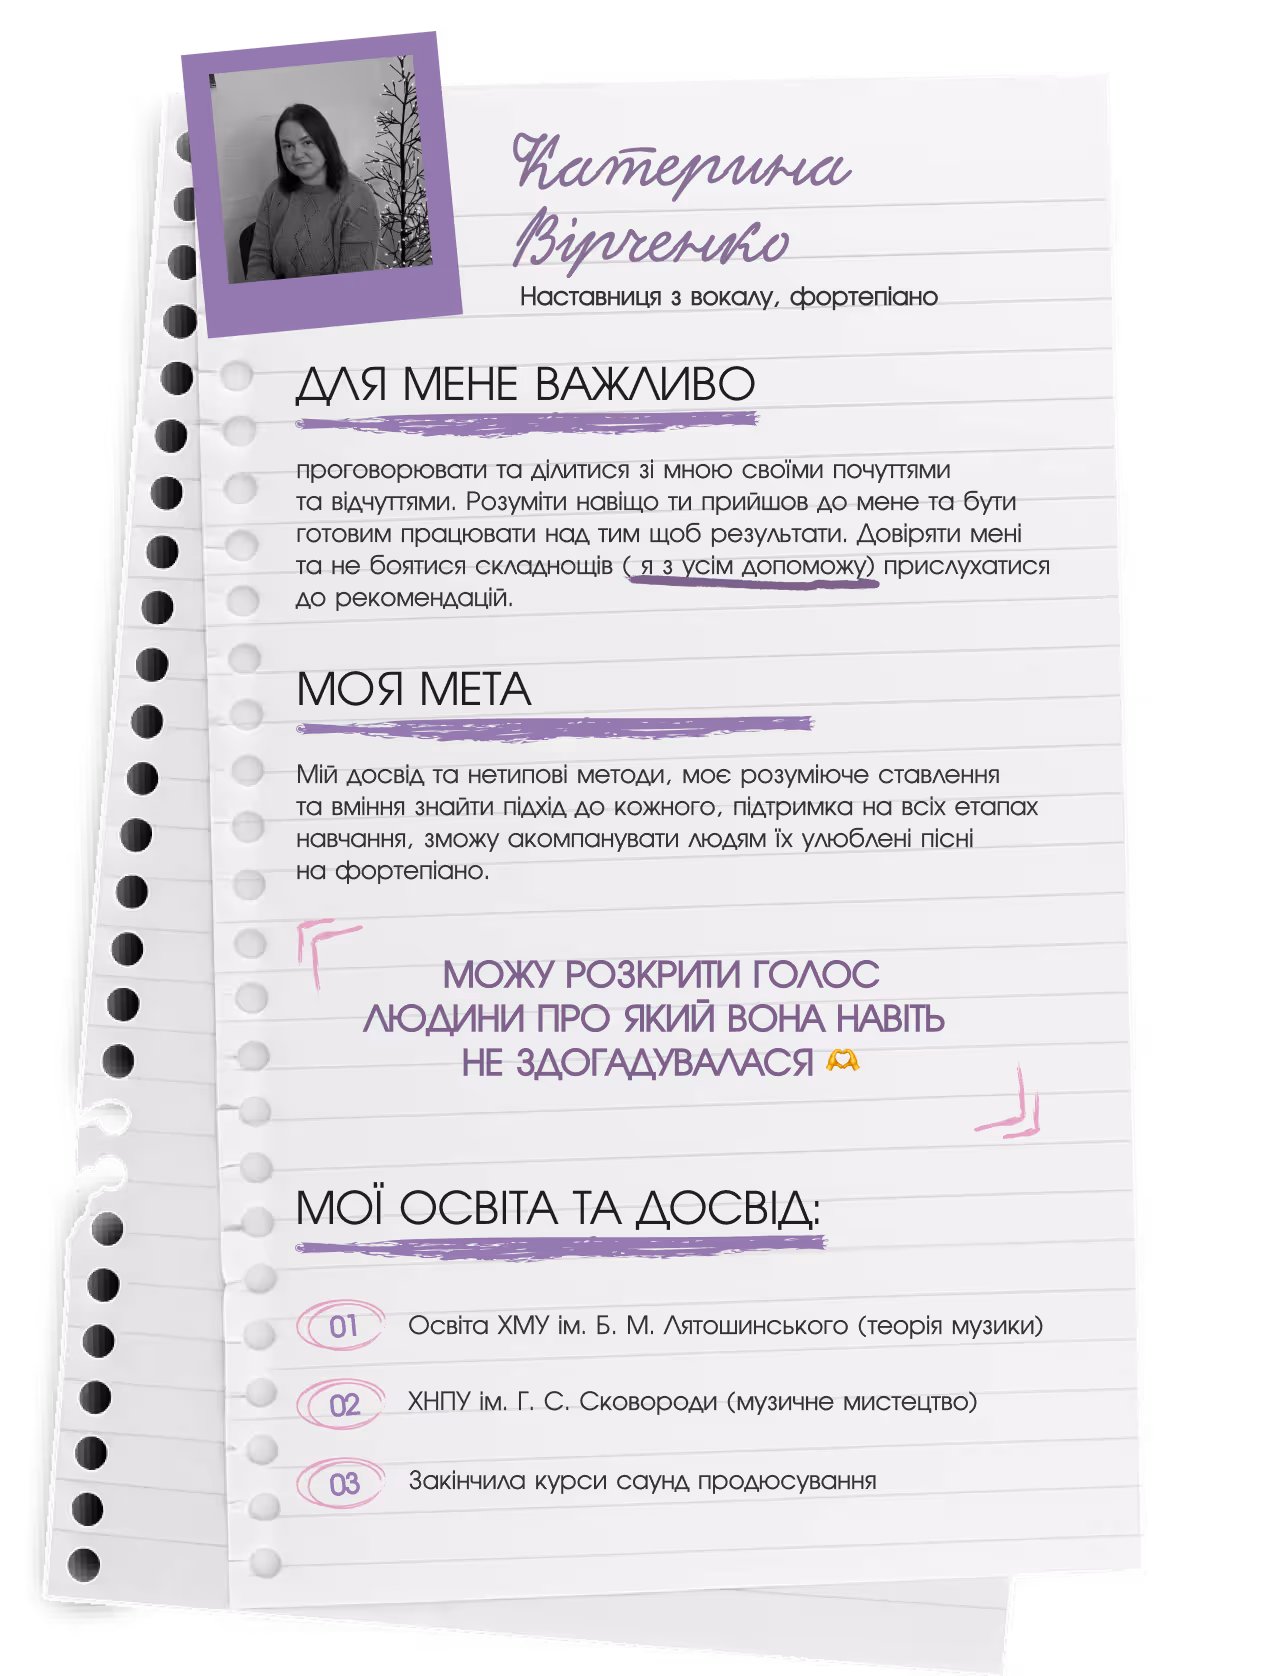 Катерина
Вірченко
Наставниця з вокалу, фортепіано
ДЛЯ МЕНЕ ВАЖЛИВО
проговорювати та ділитися зі мною своїми почуттями
та відчуттями. Розуміти навіщо ти прийшов до мене та бути
готовим працювати над тим щоб результати. Довіряти мені
та не боятися складнощів ( я з усім допоможу) прислухатися
до рекомендацій.
МОЯ МЕТА
Мій досвід та нетипові методи, моє розуміюче ставлення
та вміння знайти підхід до кожного, підтримка на всіх етапах
навчання, зможу акомпанувати людям їх улюблені пісні
на фортепіано.
МОЖУ РОЗКРИТИ ГОЛОС
ЛЮДИНИ ПРО ЯКИЙ ВОНА НАВІТЬ
НЕ ЗДОГАДУВАЛАСЯ 🫶
МОЇ ОСВІТА ТА ДОСВІД:
01 Освіта ХМУ ім. Б. М. Лятошинського (теорія музики)
02 ХНПУ ім. Г. С. Сковороди (музичне мистецтво)
03 Закінчила курси саунд продюсування